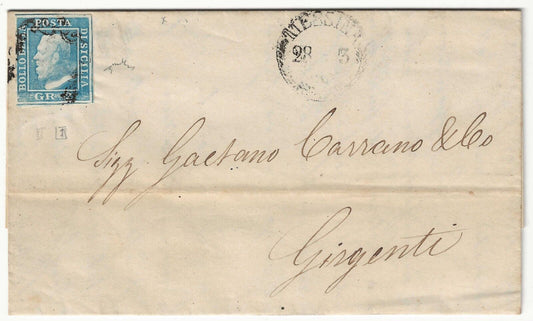 BOLLO DELLA
POSTA
DI SICILIA
GR
MESSINA
28 3
Sigg Gaetano Carrano & Co
Girgenti